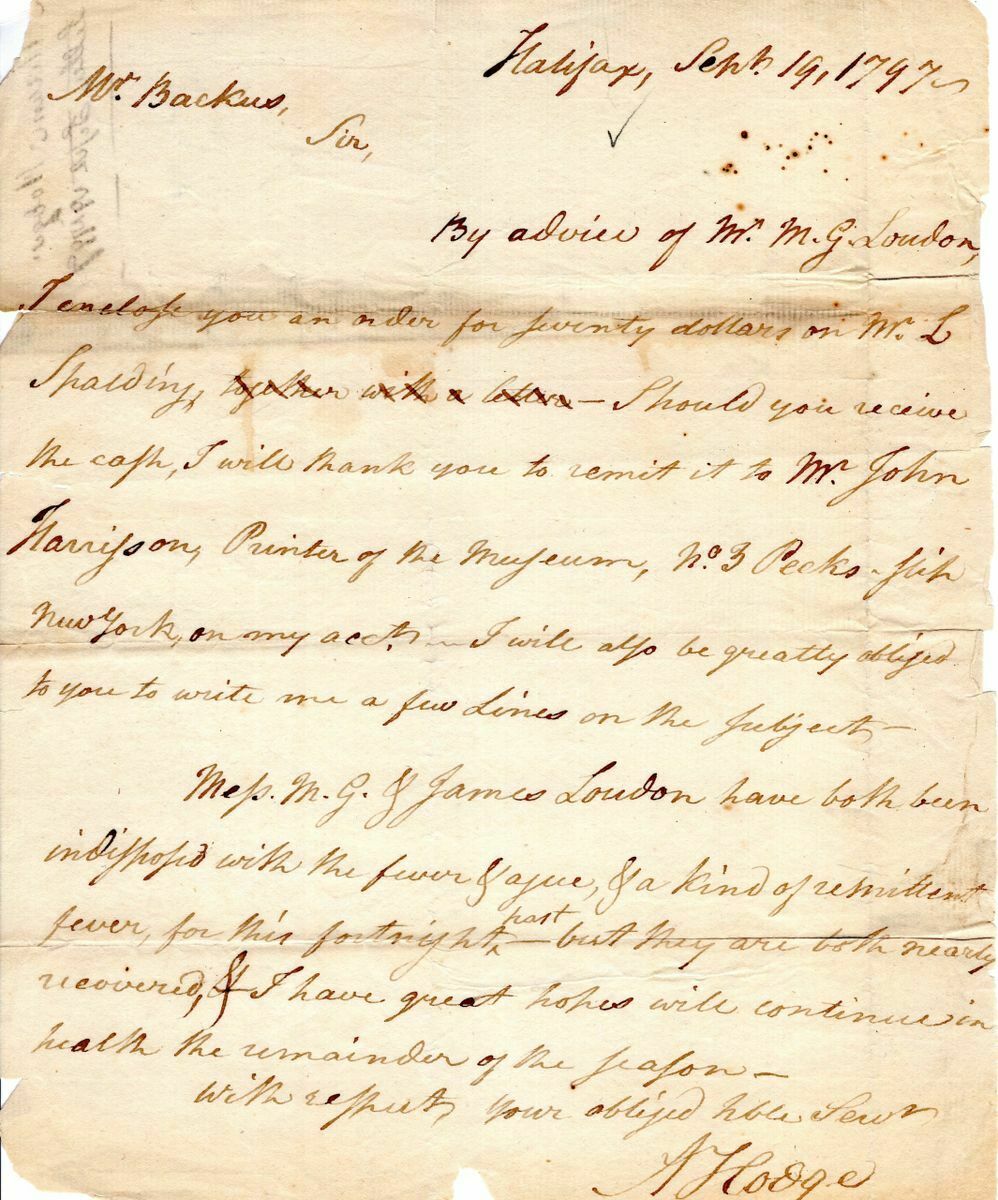 Halifax, Sept. 19, 1797
Mr. Backus,
Sir,
By advice of Mr. M. G. Loudon,
I enclose you an order for seventy dollars on Mr. L
Spalding, together with a letter — Should you receive
the cash, I will thank you to remit it to Mr. John
Harrisson, Printer of the Museum, No. 3 Pecks-slip
New York, on my acct. — I will also be greatly obliged
to you to write me a few Lines on the subject —
Mess. M. G. & James Loudon have both been
indisposed with the fever & ague, & a kind of remittent
fever, for this fortnight past — but they are both nearly
recovered, & I have great hopes will continue in
health the remainder of the season —
with respect, your obliged hble Servt
A Hodge